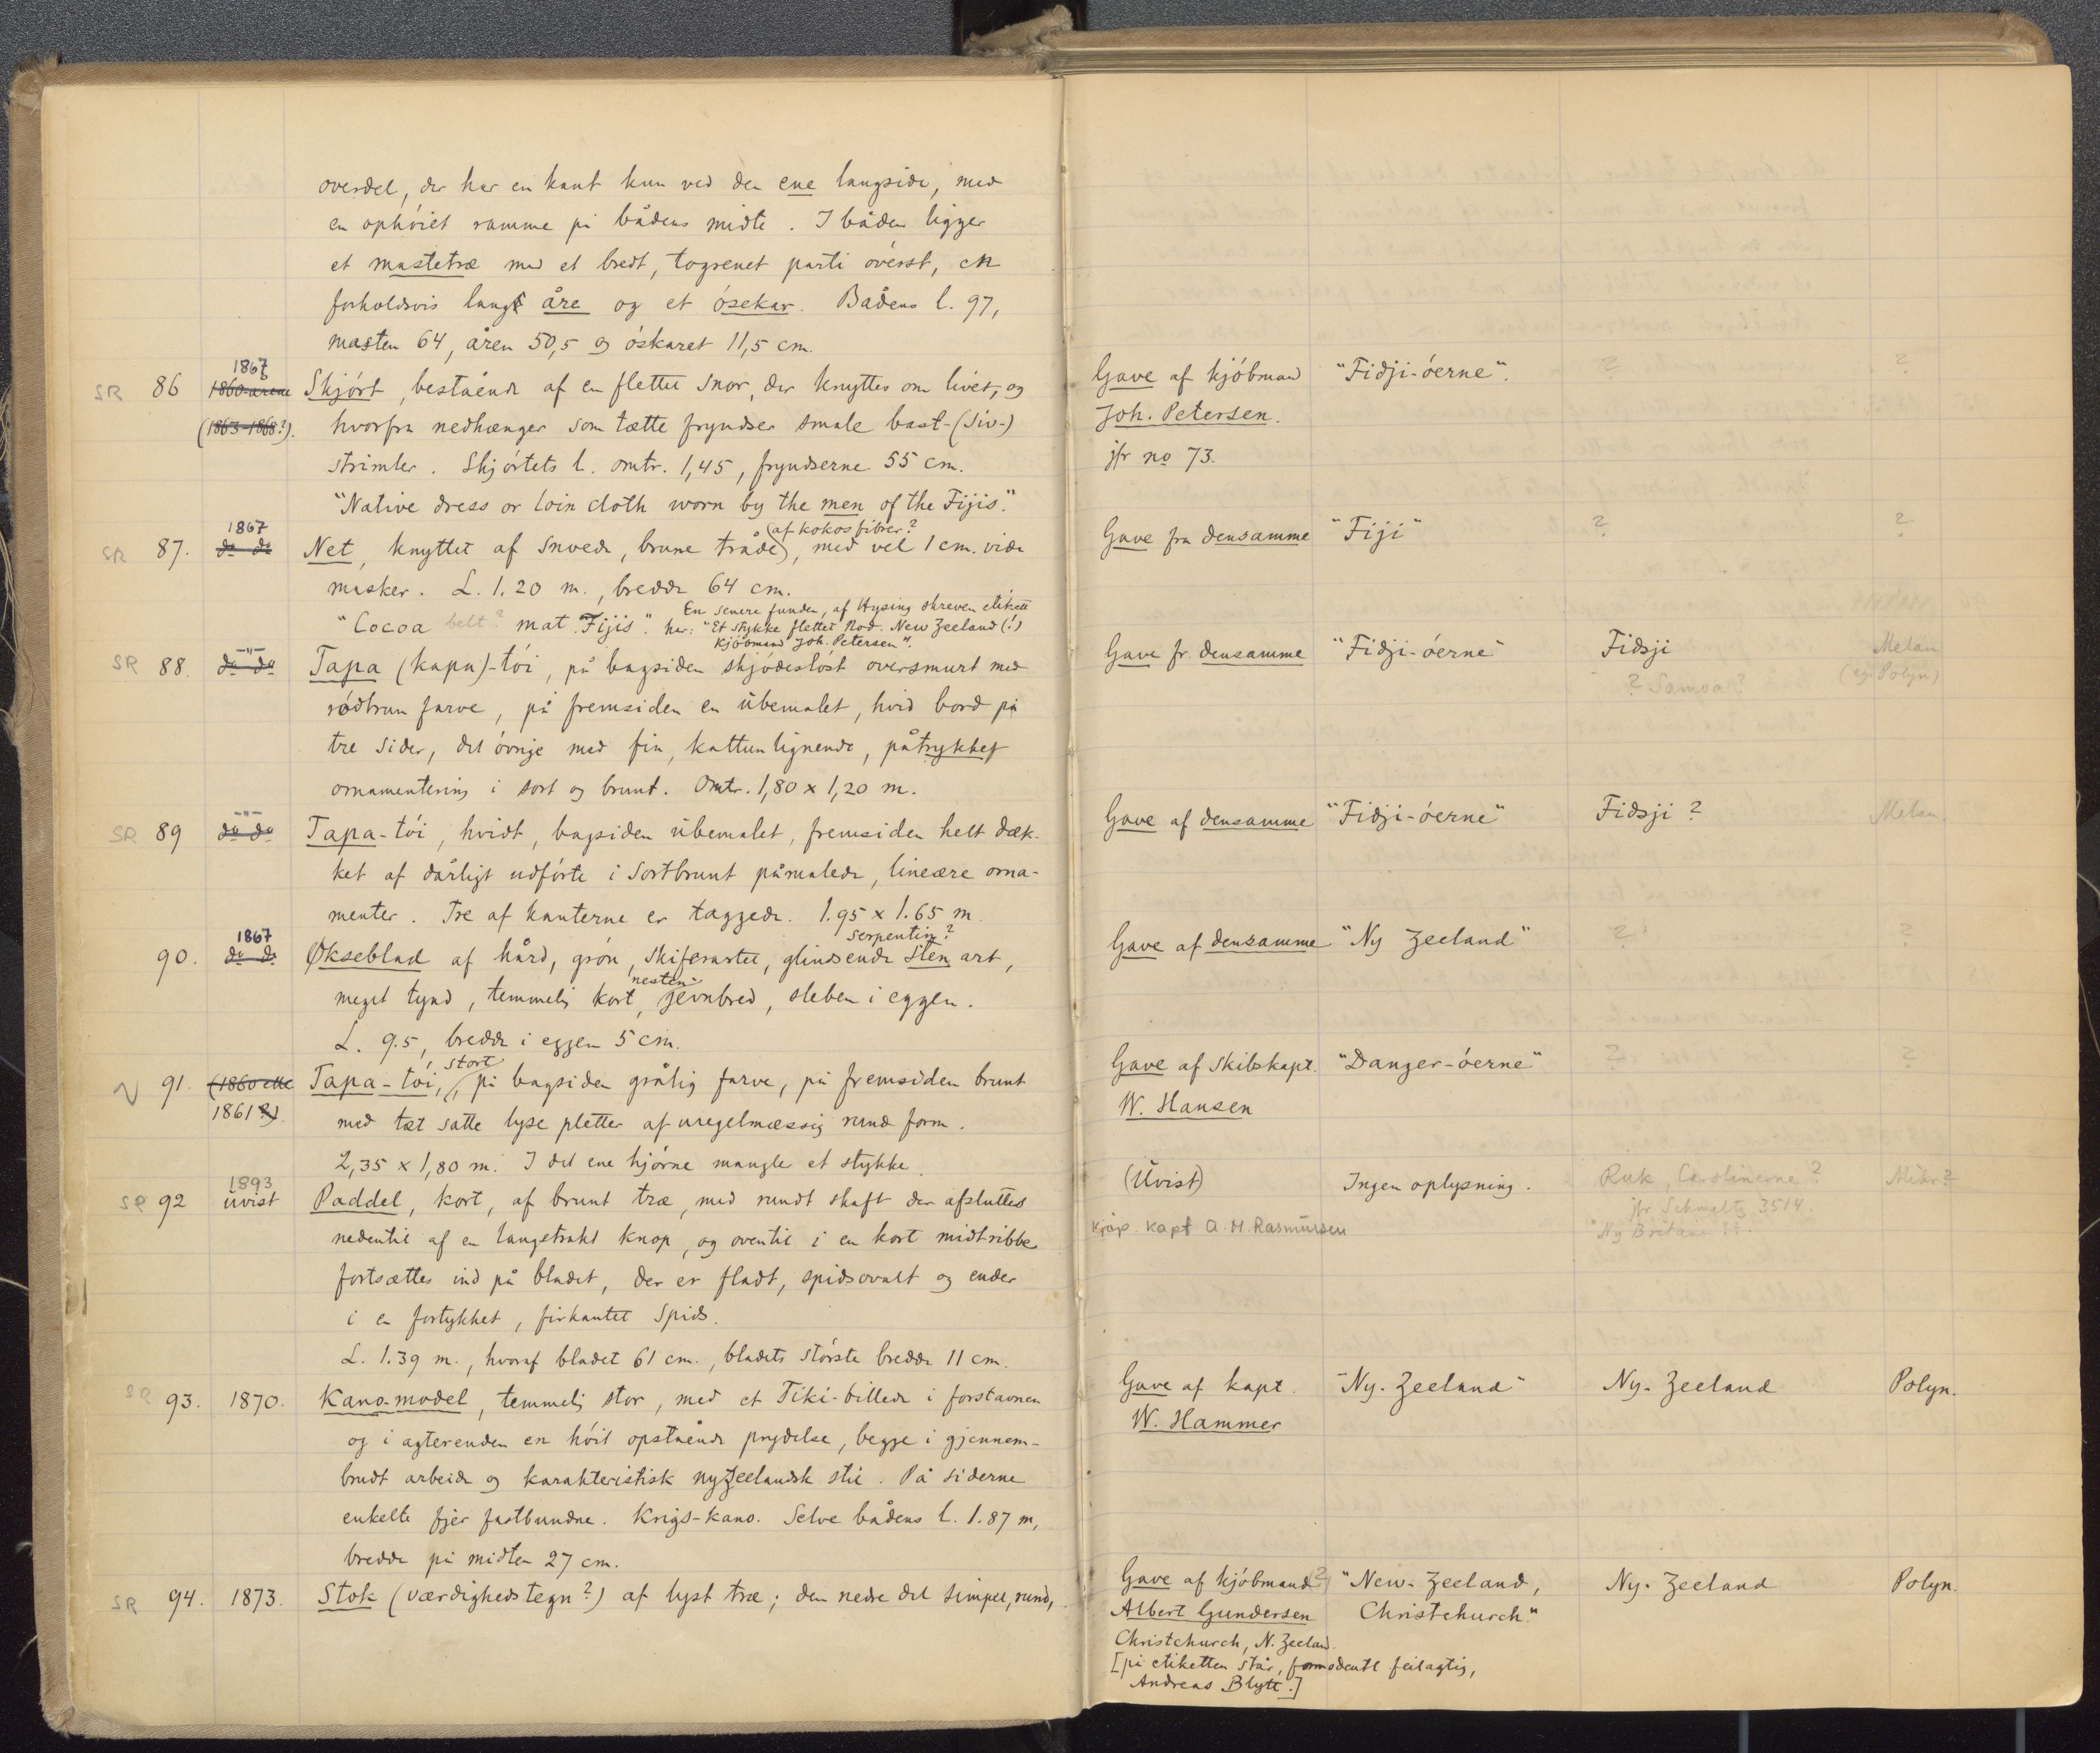 overdel, der har en kant kun ved den ene langside, med
en ophóiet ramme på bådens midte. I båden ligger
et mastetræ med et bredt, togrenet parti óverst, en
forholdsvis lang åre og et ósekar. Bådens l. 97,
masten 64, åren 50,5 og óskaret 11,5 cm.
SR 86 1867 1860-årene (1863-1868?). Skjórt, bestående af en flettet snor, der knyttes om livet, og
hvorfra nedhænger som tætte fryndser smale bast-(siv-)
strimler. Skjórtets l. omtr. 1,45, fryndserne 55 cm.
"Native dress or loin cloth worn by the men of the Fijis."
Gave af kjóbmand Joh. Petersen. jfr no 73.
"Fidji-óerne". ? ?
SR 87. 1867 do do Net, knyttet af snoede, brune tråde (af kokosfibrer?), med vel 1 cm. vide
masker. L. 1.20 m., bredde 64 cm.
"Cocoa belt? mat Fijis". En senere funden, af Hysing skreven etikett
har: "Et stykke flettet Rod. New Zeeland (!)
Kjóbmand Joh. Petersen".
Gave fra densamme "Fiji" ? ?
SR 88. -"- do do Tapa (kapa)-tói, på bagsiden skjódeslóst oversmurt med
ródbrun farve, på fremsiden en ubemalet, hvid bord på
tre sider, det óvrige med fin, kattunlignende, påtrykket
ornamentering i sort og brunt. Omtr. 1,80 x 1,20 m.
Gave fr. densamme "Fidji-óerne" Fidsji Melan
? Samoa? (eg. Polyn)
SR 89 -"- do do Tapa-tói, hvidt, bagsiden ubemalet, fremsiden helt dæk-
ket af dårligt udfórte i sortbrunt påmalede, lineære orna-
menter. Tre af kanterne er taggede. 1.95 x 1.65 m.
Gave af densamme "Fidji-óerne" Fidsji ? Melan.
90. 1867 do do Økseblad af hård, grón, skiferartet, glindsende sten art, serpentin?
meget tynd, temmelig kort, nesten jevnbred, sleben i eggen.
L. 9.5, bredde i eggen 5 cm.
Gave af densamme "Ny Zeeland" ? ?
N 91. (1860 eller 1861?). Tapa-tói, stort, på bagsiden grålig farve, på fremsiden brunt
med tæt satte lyse pletter af uregelmæssig rund form.
2,35 x 1,80 m. I det ene hjórne mangler et stykke.
Gave af Skibskapt. W. Hansen
"Danger-óerne" ? ?
SR 92 1893 uvist Paddel, kort, af brunt træ, med rundt skaft der afsluttes
nedentil af en langstrakt knop, og oventil i en kort midtribbe
fortsættes ind på bladet, der er fladt, spidsovalt og ender
i en fortykket, firkantet spids.
L. 1.39 m., hvoraf bladet 61 cm., bladets stórste bredde 11 cm.
(Uvist) Ingen oplysning. Ruk, Carolinerne? Mikr?
kjøp. kapt A. M. Rasmussen jfr Schmeltz 3514.
"Ny Britain"
SR 93. 1870. Kano-model, temmelig stor, med et Tiki-billede i forstavnen
og i agterenden en hóit opstående prydelse, begge i gjennem-
brudt arbeide og karakteristisk nyzeelandsk stil. På siderne
enkelte fjer fastbundne. Krigs-kano. Selve bådens l. 1.87 m,
bredde på midten 27 cm.
Gave af kapt. W. Hammer
"Ny-Zeeland" Ny-Zeeland Polyn.
SR 94. 1873. Stok (værdighedstegn?) af lyst træ; den nedre del simpel, rund,
Gave af kjóbmand? "New-Zeeland, Ny-Zeeland Polyn.
Albert Gundersen Christchurch."
Christchurch, N. Zeeland.
[på etiketten står, formodentl feilagtig,
Andreas Blytt.]